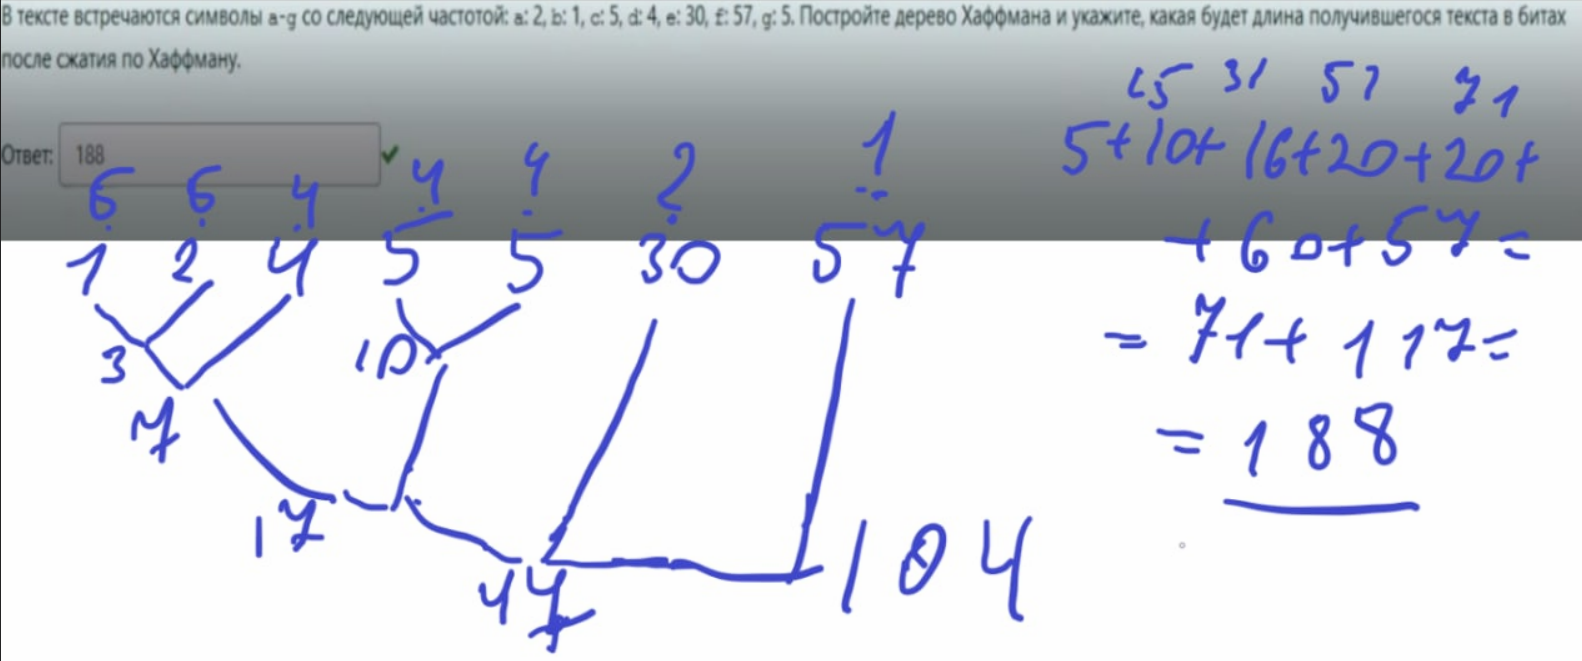 В тексте встречаются символы a-g со следующей частотой: a: 2, b: 1, c: 5, d: 4, e: 30, f: 57, g: 5. Постройте дерево Хаффмана и укажите, какая будет длина получившегося текста в битах
после сжатия по Хаффману.
Ответ: 188
15 31 51 71
5+10+16+20+20+
+60+57=
=71+117=
=188
4 4 2 1
1 2 4 5 5 30 57
3 10
7
17
47
104